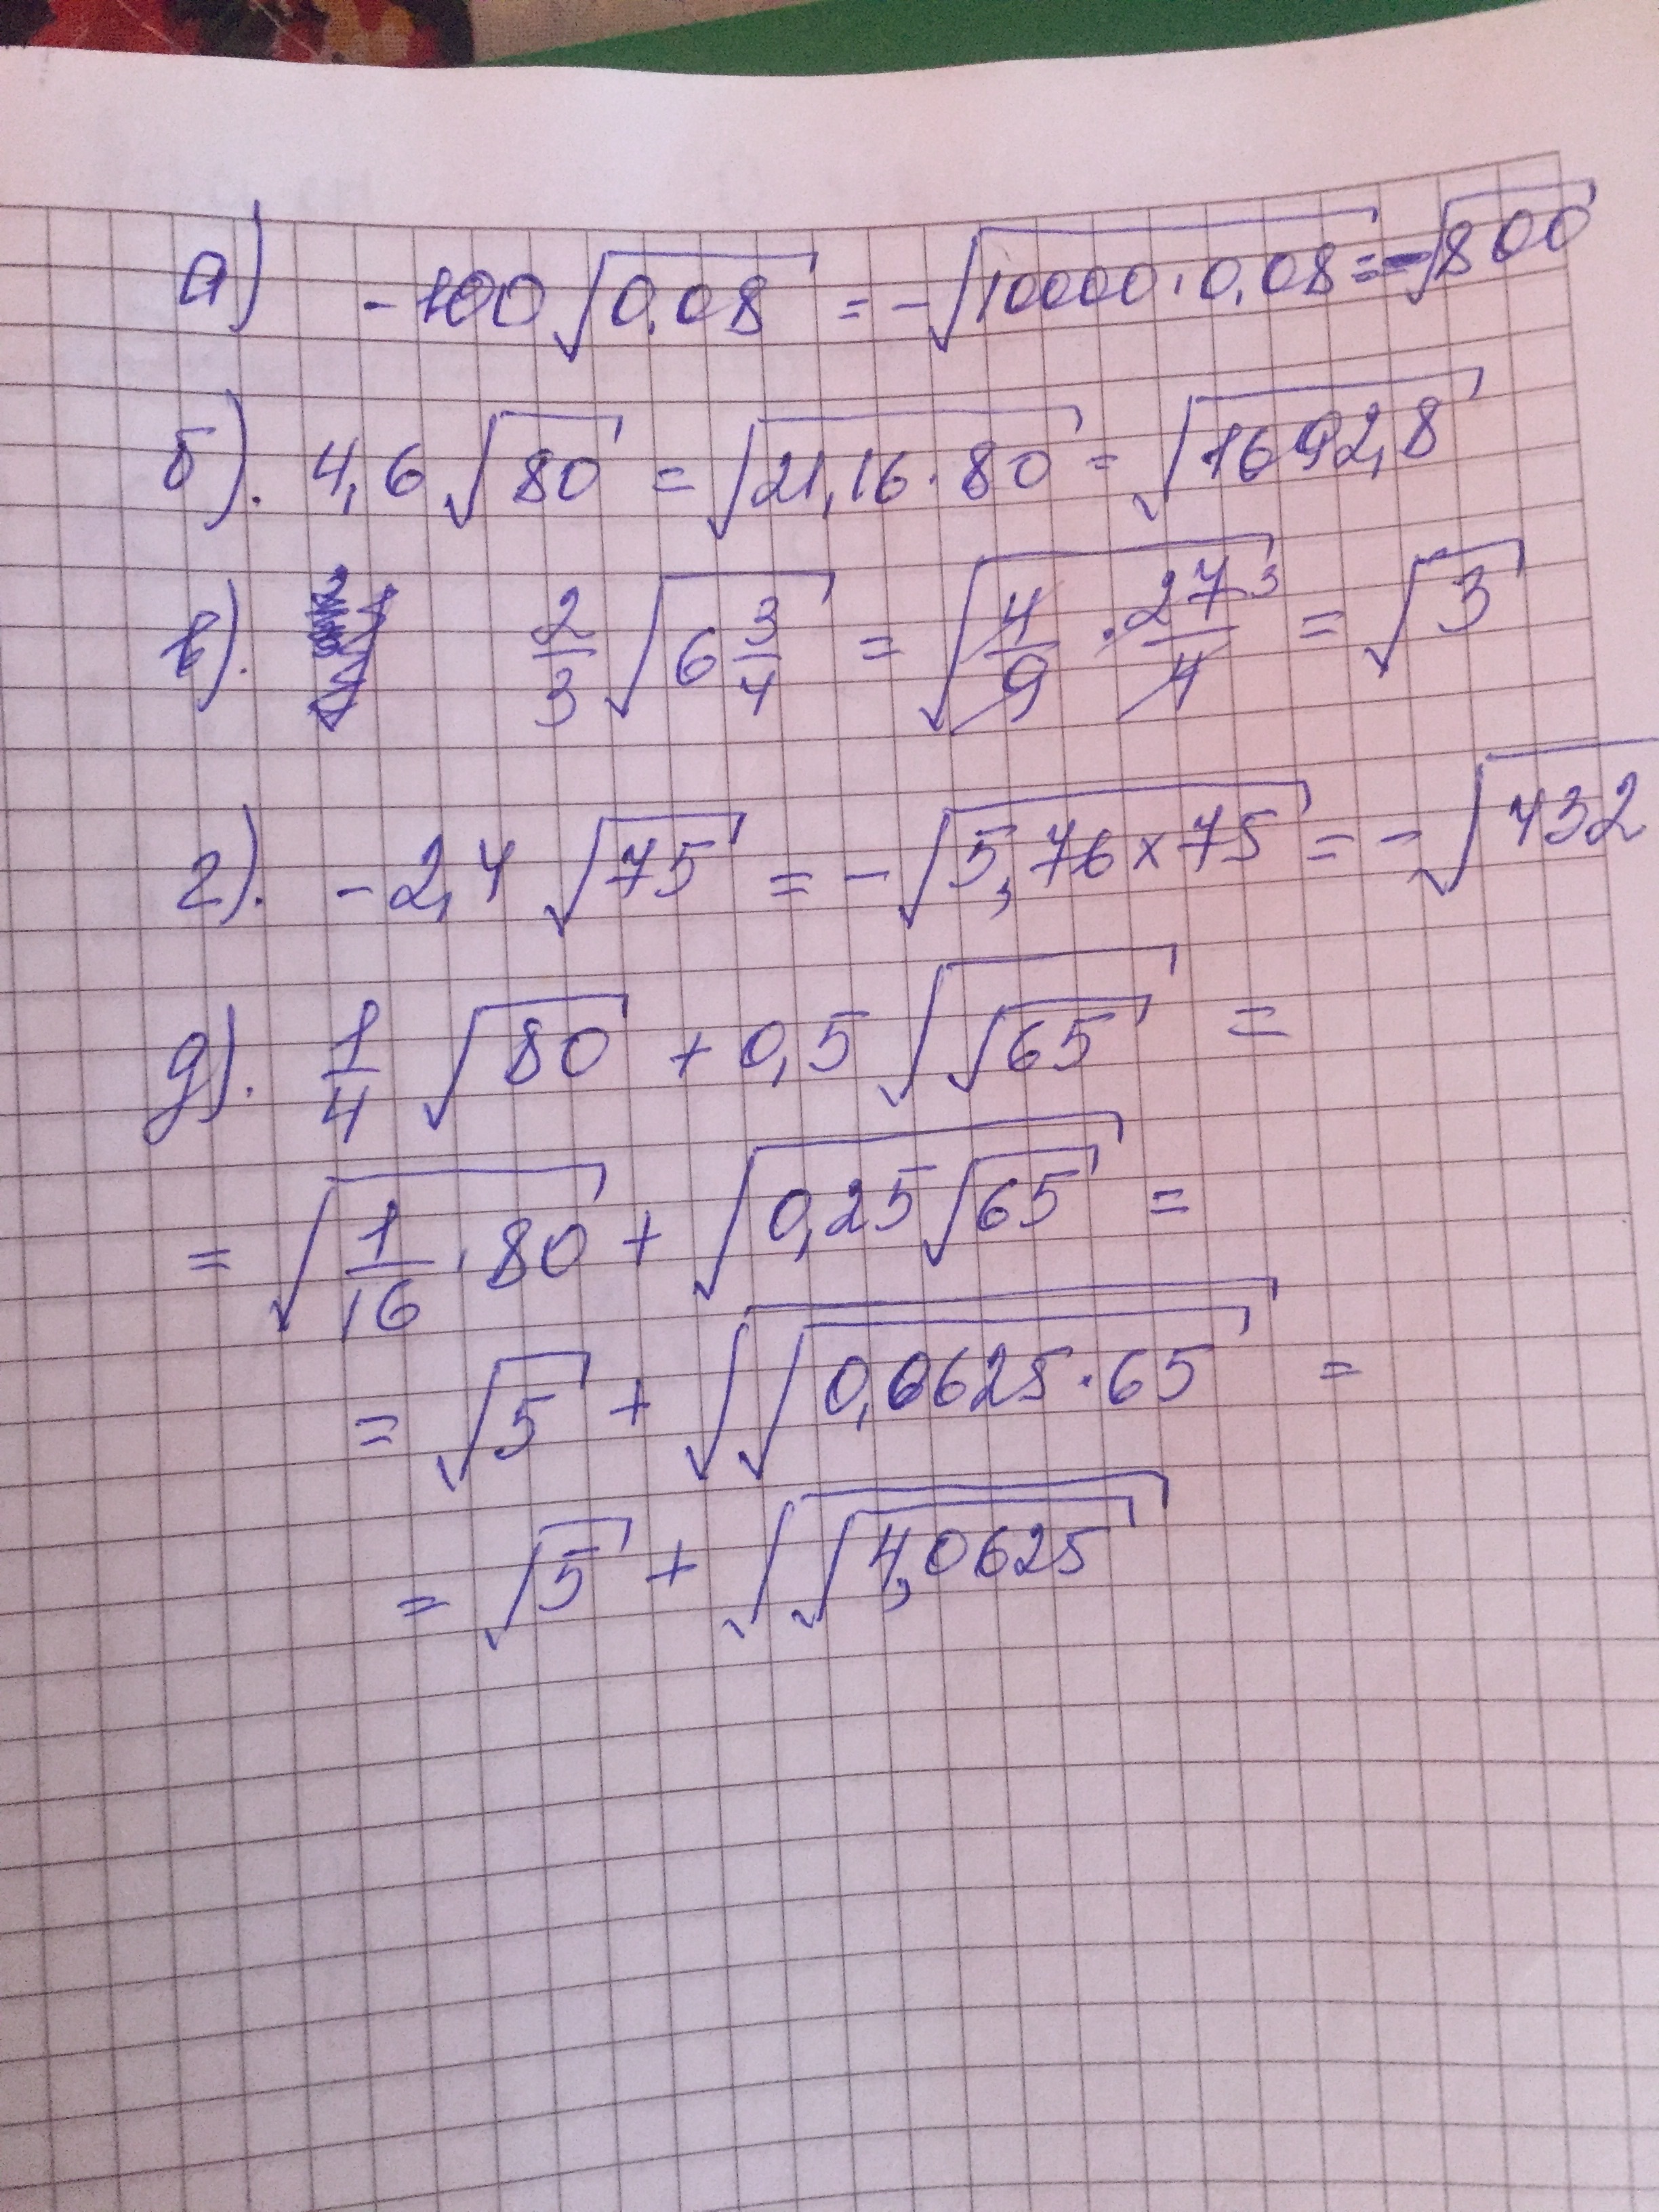 а) -100√0,08 = -√10000·0,08 = -√800
б). 4,6√80 = √21,16·80 = √1692,8
в). 2/3 √6 3/4 = √4/9 · 27/4 3 = √3
г). -2,4 √75 = -√5,76×75 = -√432
д). 1/4 √80 + 0,5√√65 =
= √1/16 · 80 + √0,25√65 =
= √5 + √√0,0625·65 =
= √5 + √√4,0625